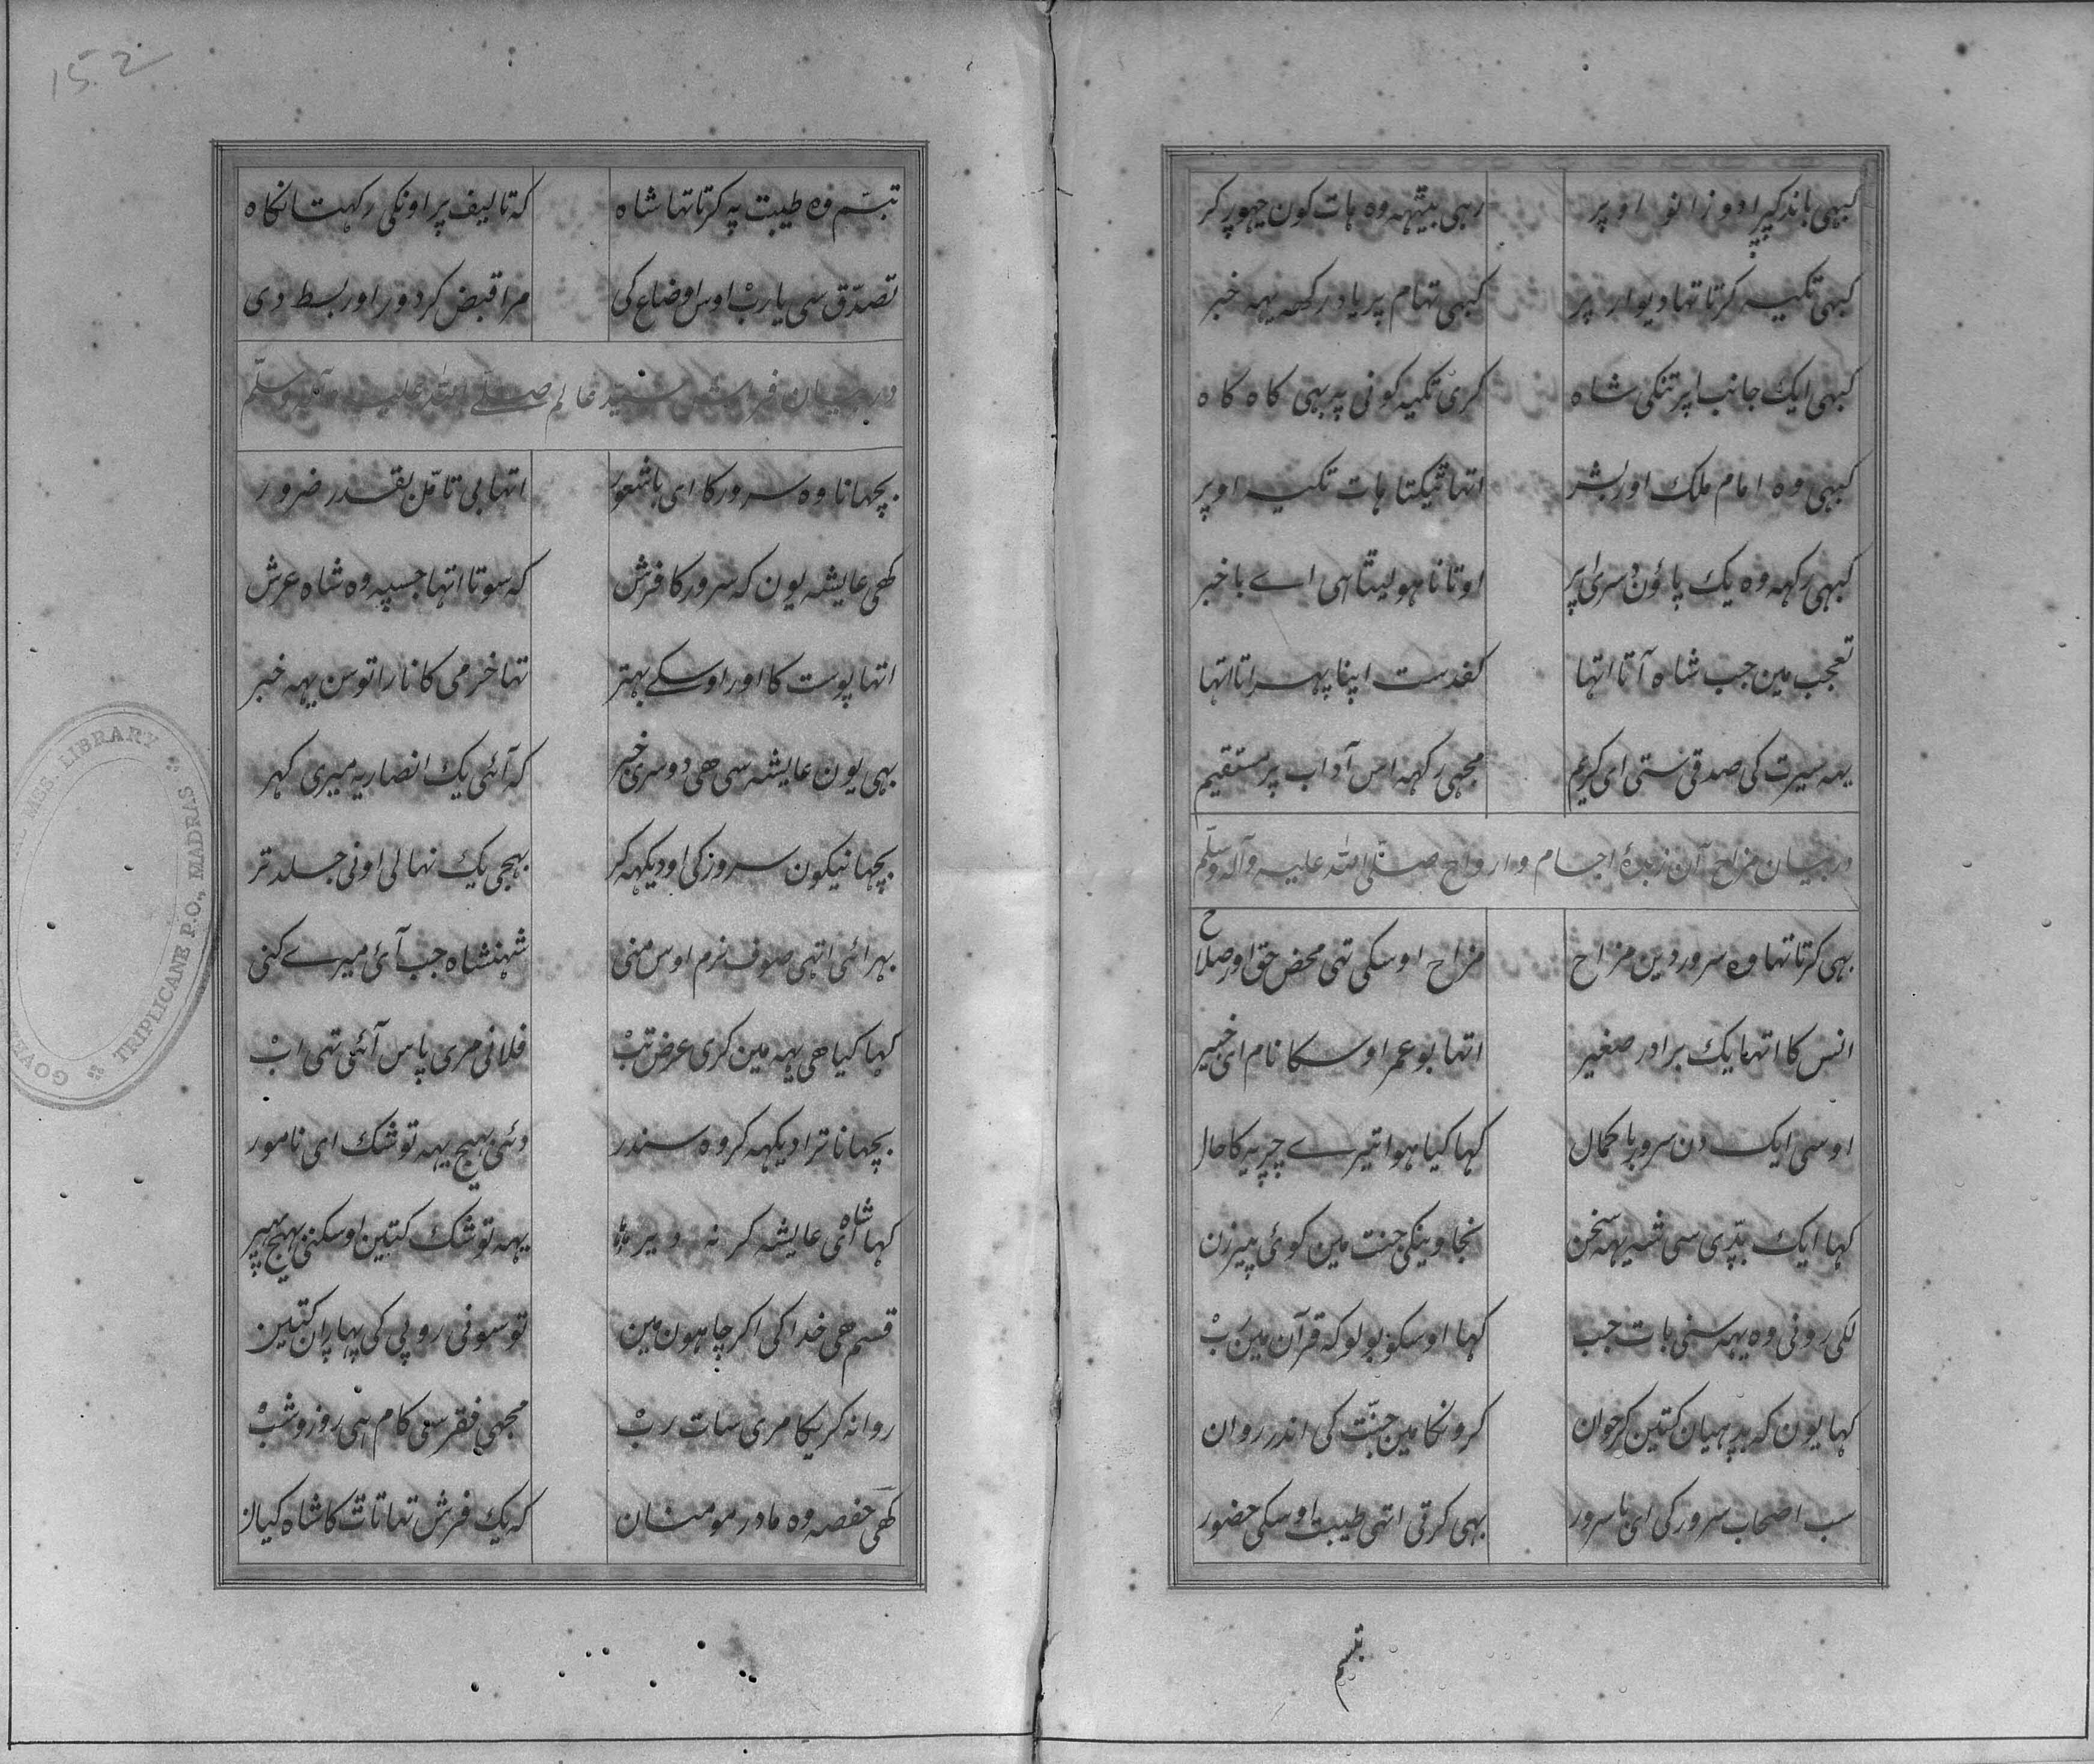 کبهی باندکپرا دو زانو اوپر رهی بیتهه وه هات کون چهور کر
کبهی تکیه کرتا تها دیوار پر کبهی تهام پر یاد رکهه یهه خبر
کبهی ایک جانب اپر تنکی شاه کری تکیه کونی په بهی کاه کاه
کبهی وه امام ملک اور بشر اتها تیکتا هات تکیه اوپر
کبهی رکهه وه یک پاؤن دسری اپر اوتانا هو لیتا هی اے با خبر
تعجب مین جب شاه آتا اتها کفدست اپنا پهراتا اتها
یهه سیرت کی صدقی ستی ای کریم مجهی رکهه اس آداب پر مستقیم
در بیان مزاح آن زبدهٔ اجسام و ارواح صلّی الله علیه وآله وسلّم
بهی کرتا تها وه سرور دین مزاح مزاح اوسکی تهی محض حق اور صلاح
انس کا اتها یک برادر صغیر اتها بو عمر اوسکا نام ای خبیر
اوسی ایک دن سرور با کمال کها کیا هوا تیرے چرپه کا حال
کها ایک بدّی سی شه یهه سخن نجاوینکی جنت مین کوئی پیرزن
لکی رونی وه یهه سنی بات جب کها اوسکو بولو که قرآن مین رب
کها یون که بدهیان کتین کر جوان کرونکا مین جنّت کی اندر روان
سب اصحاب سرور کی ای با سرور بهی کرتی اتهی طیبت اوسکی حضور
تبسّم
152
تبسّم وه طیبت په کرتا تها شاه که تالیف پر اونکی رکهتا نکاه
تصدّق سی یارب اوس اوضاع کی مرا قبض کر دور اور بسط دی
در بیان فرش سیّد عالم صلّے الله علیه وآله وسلّم
بچهانا وه سرور کا ای با شعور اتها بی تامّل بقدر ضرور
کهی عایشه یون که سرور کا فرش که سوتا اتها جسپه وه شاه عرش
اتها پوست کا اور اوسکے بهتر تها خرمی کا نارا تو سن یهه خبر
بهی یون عایشه سی هی دوسری خبر که آئی یک انصاریه میری کهر
بچهانیکون سرور کی او دیکهه کر بهجی یک نهالی اونی جلد تر
بهرائی اتهی صوف نرم اوس منی شهنشاه جب آئ میرے کنی
کها کیا هی یهه مین کری عرض تب فلانی مری پاس آئی تهی اب
بچهانا ترا دیکهه کر وه سندر دئی بهیج یهه توشک ای نامور
کها شاه ای عایشه کر نه دیر یهه توشک کتین اوسکنی بهیج پهیر
قسم هی خدا کی اکر چاهون مین تو سونی روپی کی پهاران کتین
روانه کریکا مری سات رب مجهی فقر سی کام هی روز و شب
کهی حفصه وه مادر مومنان که یک فرش تها تات کا شاه کیان
GOVERNMENT ORIENTAL MSS. LIBRARY TRIPLICANE P.O., MADRAS